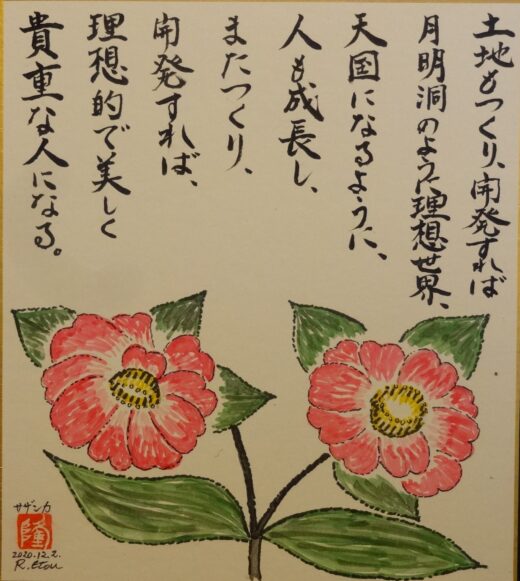 土地もつくり、開発すれば
月明洞のように理想世界、
天国になるように、
人も成長し、
またつくり、
開発すれば、
理想的で美しく
貴重な人になる。
サザンカ
隆
2020.12.2.
R.Etou